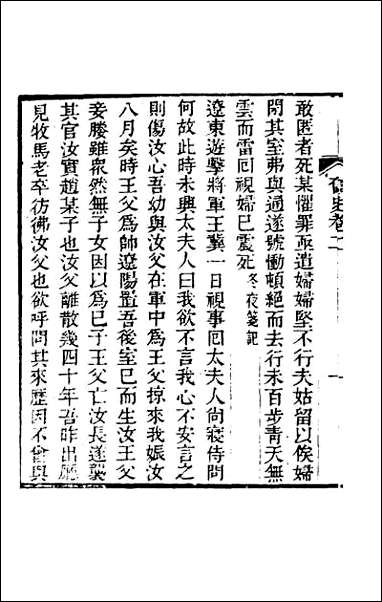 敢匿者死某懼罪亟遣婦婦堅不行夫姑留以俟婦
閉其室弗與通遂號慟頓絕而去行未百步靑天無
雲而雷囘視婦已震死 冬夜箋記
遼東遊擊將軍王冀一日視事囘太夫人尙寢侍問
何故此時未興太夫人曰我欲不言我心不安言之
則傷汝心吾幼與汝父在軍中爲王父掠來我娠汝
八月矣時王父爲帥遼陽置吾後室已而生汝王父
妾媵雖衆然無子女因以爲已子王父亡汝長遂襲
其官汝實趙某子也汝父離散幾四十年吾昨出廳
見牧馬老卒彷彿汝父也欲呼問其來歷因不曾與